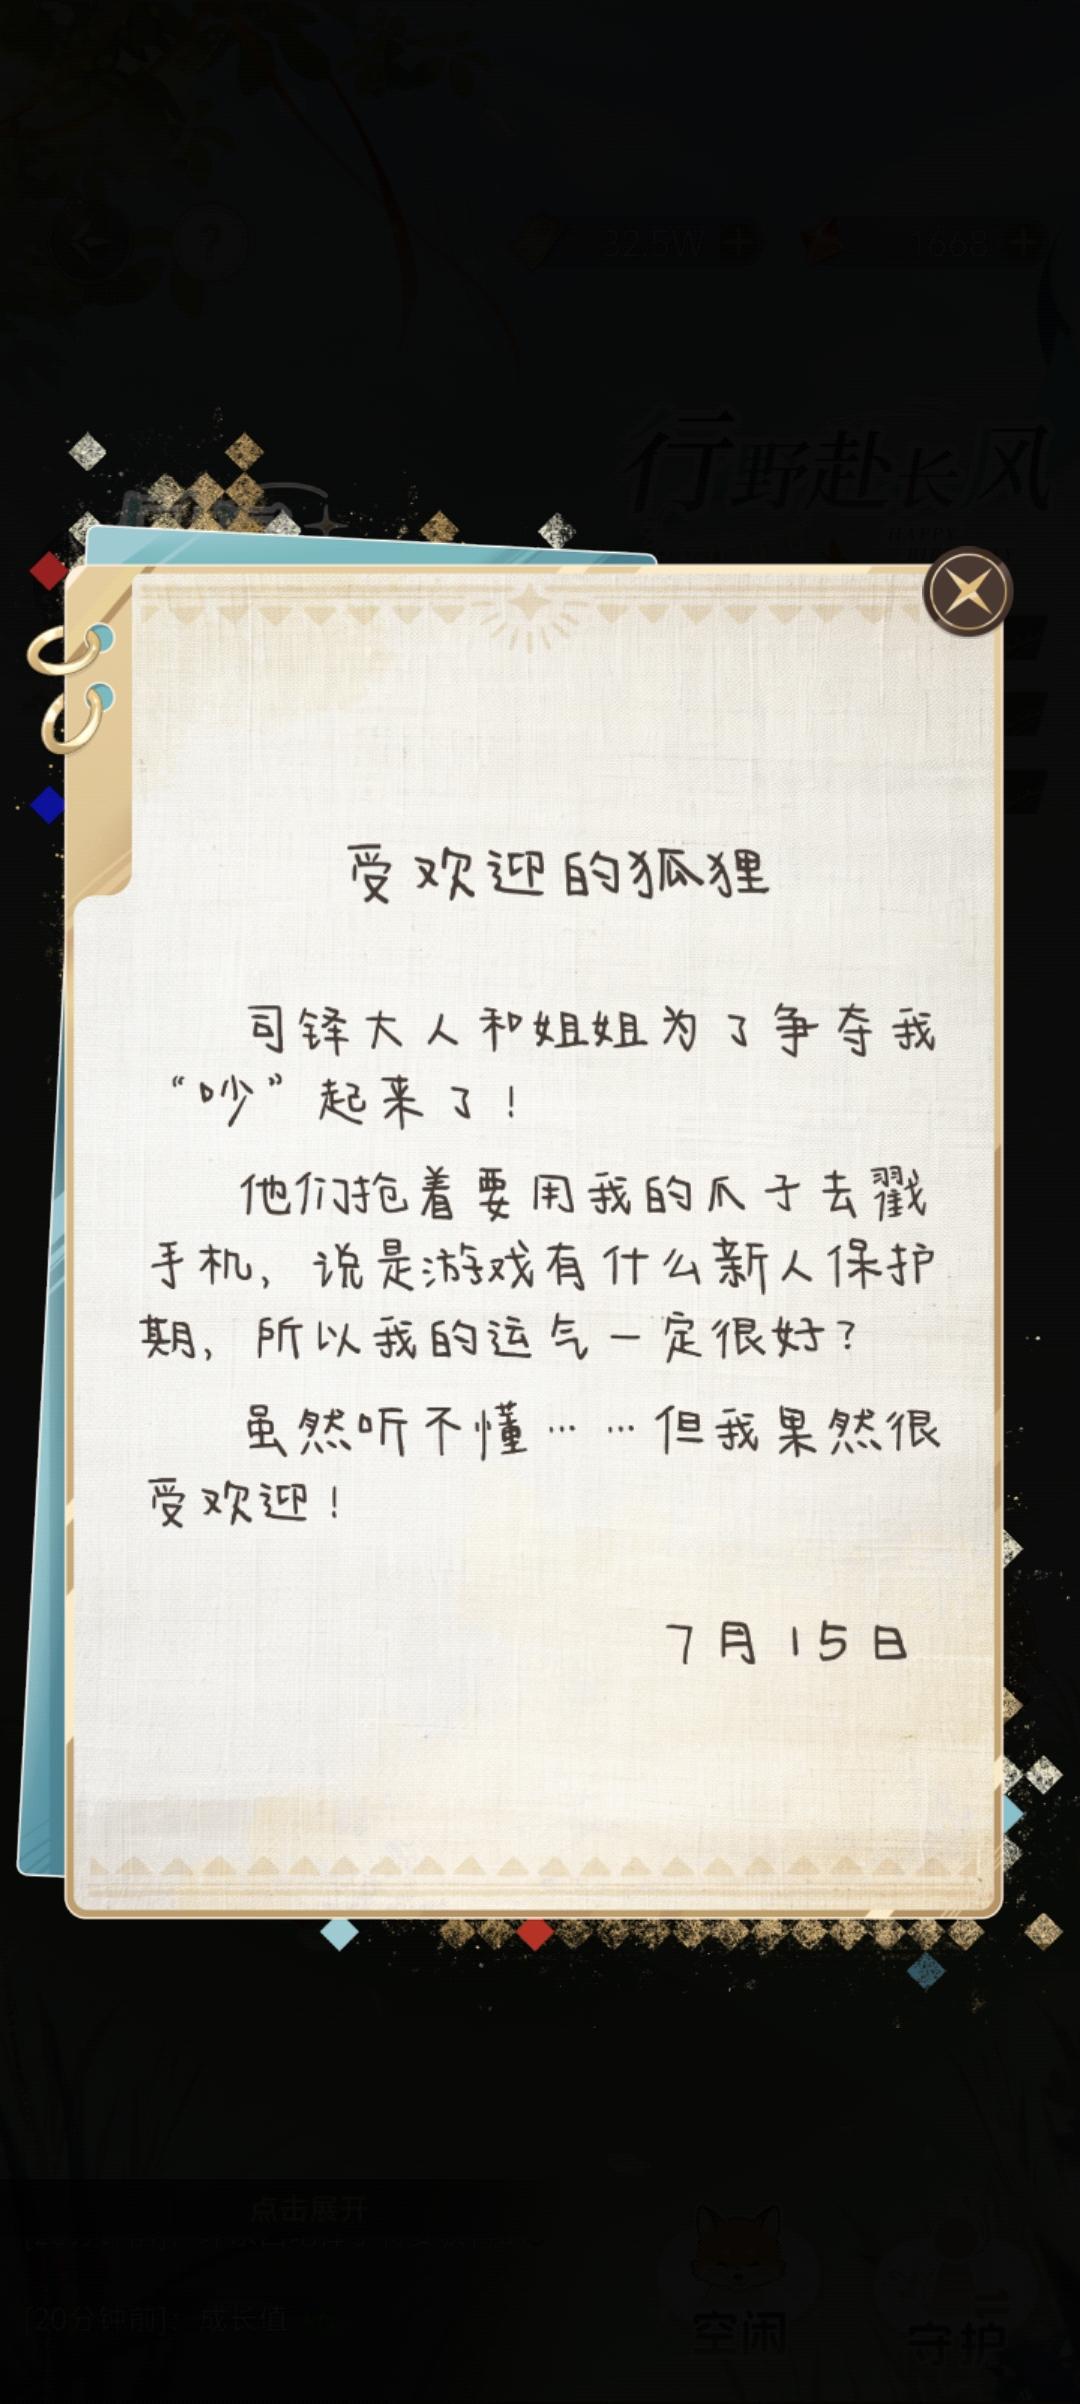 32.5W
1668
行野赴长风
HAPPY
受欢迎的狐狸
司铎大人和姐姐为了争夺我
“吵”起来了！
他们抢着要用我的爪子去戳
手机，说是游戏有什么新人保护
期，所以我的运气一定很好？
虽然听不懂……但我果然很
受欢迎！
7月15日
点击展开
[20分钟前]：成长值
空闲
守护